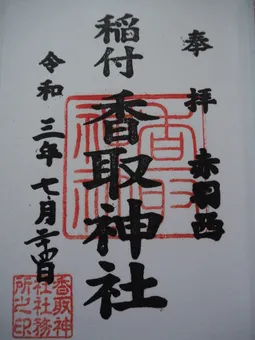 奉拝 赤羽西
稲付 香取神社
令和三年七月二十四日
香取
神社
香取神
社社務
所之印